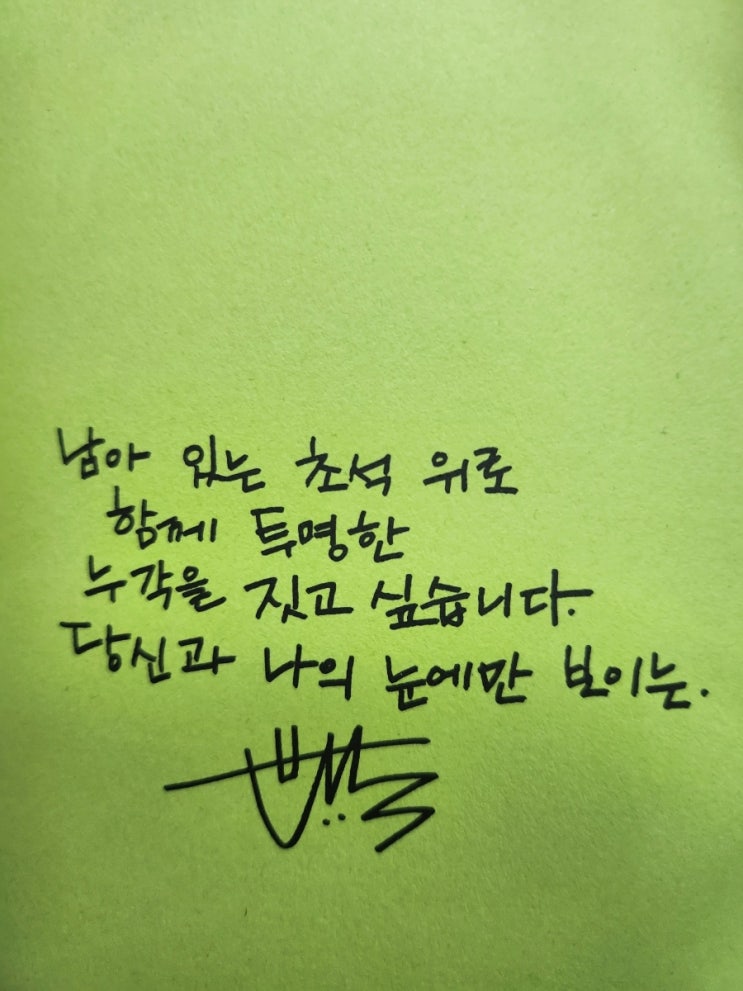 남아 있는 초석 위로
함께 투명한
누각을 짓고 싶습니다.
당신과 나의 눈에만 보이는.